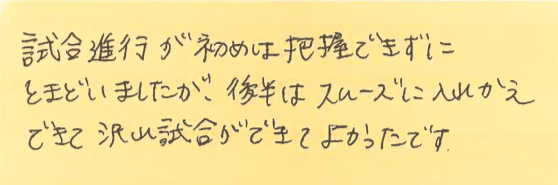 試合進行が初めは把握できずに
とまどいましたが、後半はスムーズに入れかえ
できて沢山試合ができてよかったです。